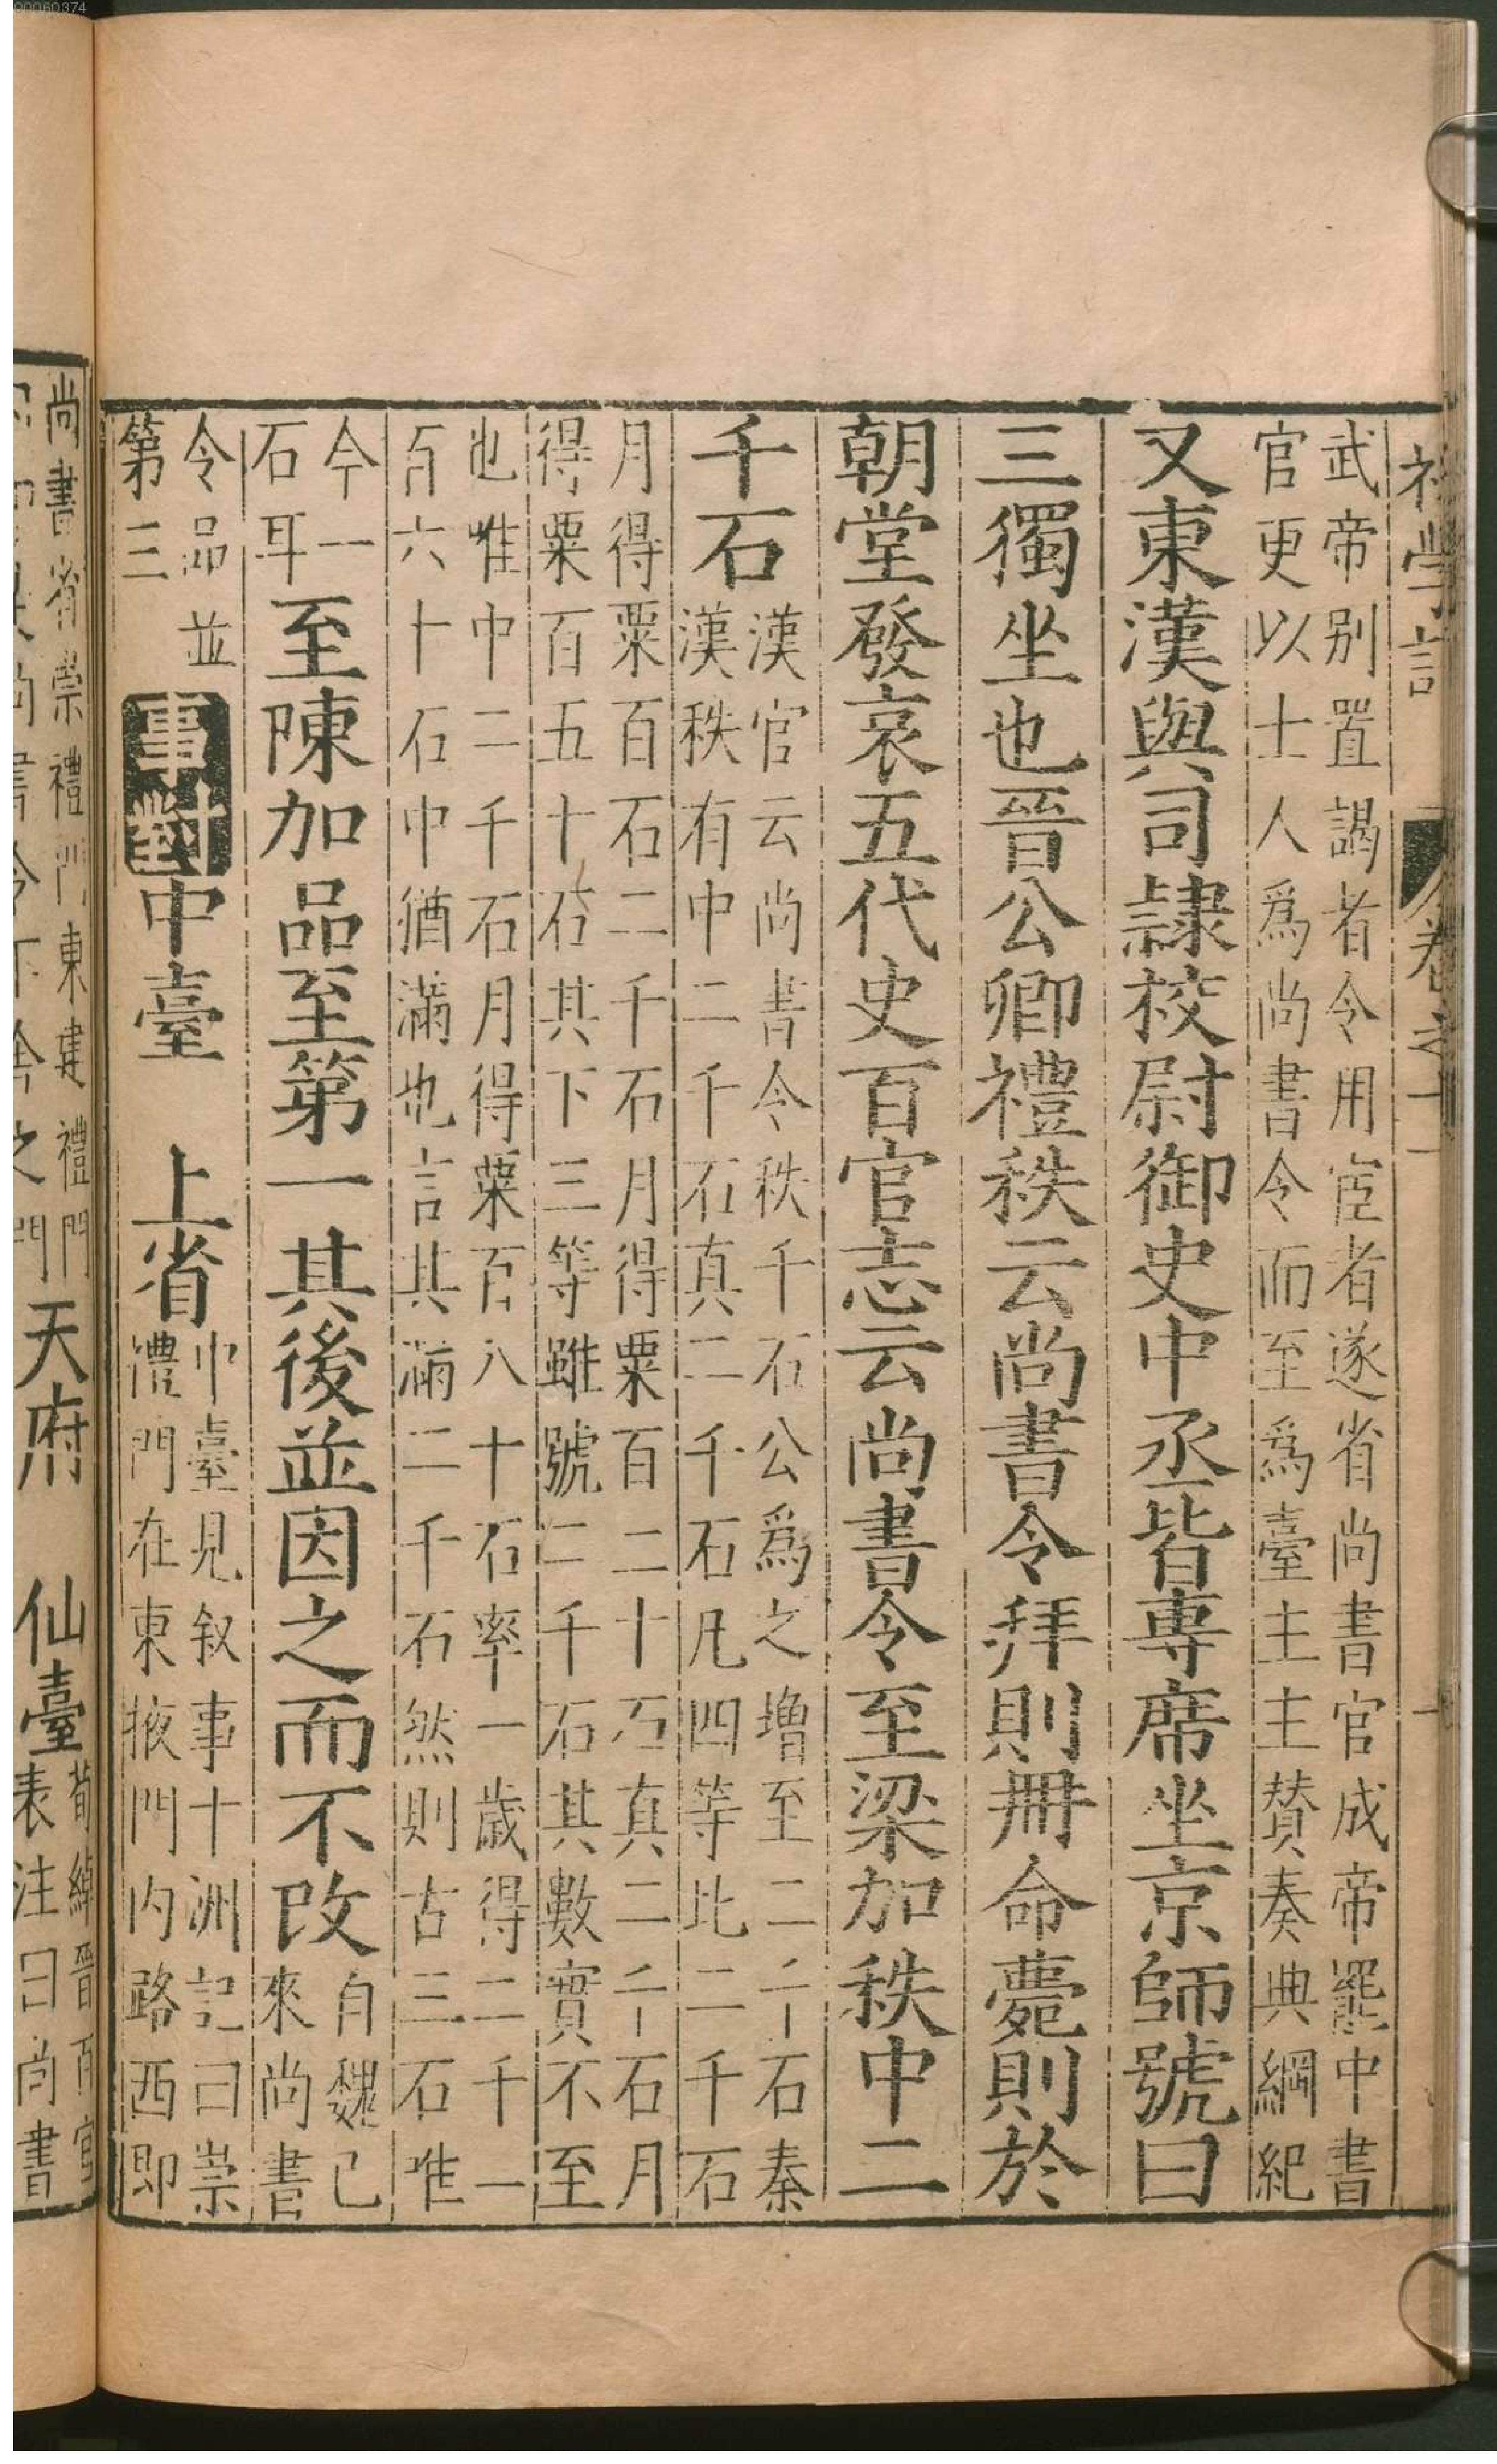 初學記
卷之十一
武帝別置謁者令用宦者遂省尚書官成帝罷中書
官更以士人爲尚書令而至爲臺主主主賛奏典綱紀
又東漢與司隷校尉御史中丞皆專席坐京師號曰
三獨坐也晉公卿禮秩云尚書令拜則冊命薨則於
朝堂發哀五代史百官志云尚書令至梁加秩中二
千石
漢官云尚書令秩千石公爲之増至二千石秦
漢秩有中二千石真二千石凡四等比二千石
月得粟百石二千石月得粟百二十石真二千石月
得粟百五十石其下三等雖號二千石其數實不至
也唯中二千石月得粟百八十石率一歳得二千一
百六十石中猶滿也言其滿二千石然則古三石唯
今一
石耳
至陳加品至第一其後並因之而不改
自魏已
來尚書
令品並
第三
事對
中臺 上省
中臺見叙事十洲記曰崇
禮門在東掖門内路西即
尚書省崇禮門東建禮門
尚書令下舎之門
天府 仙臺
荀綽晉百官
表注曰尚書
00060374